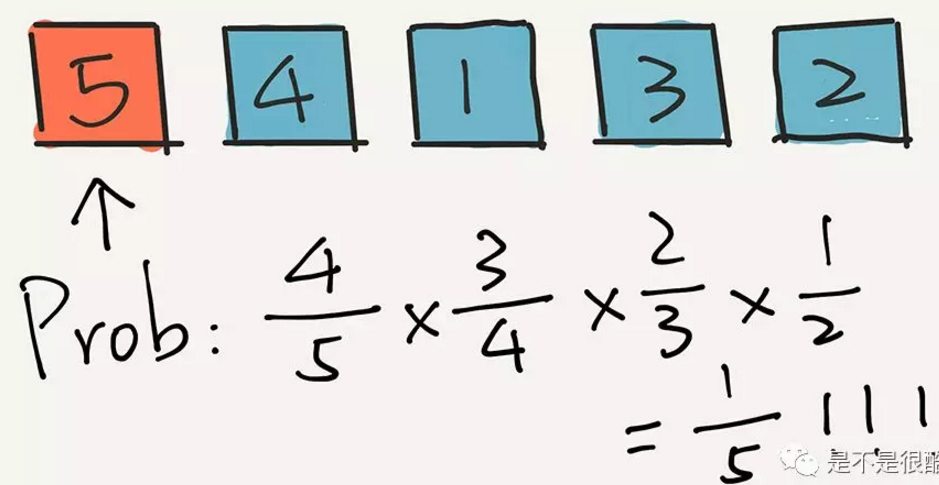 5 4 1 3 2
↑
Prob: 4/5 × 3/4 × 2/3 × 1/2
= 1/5 !!!
是不是很酷